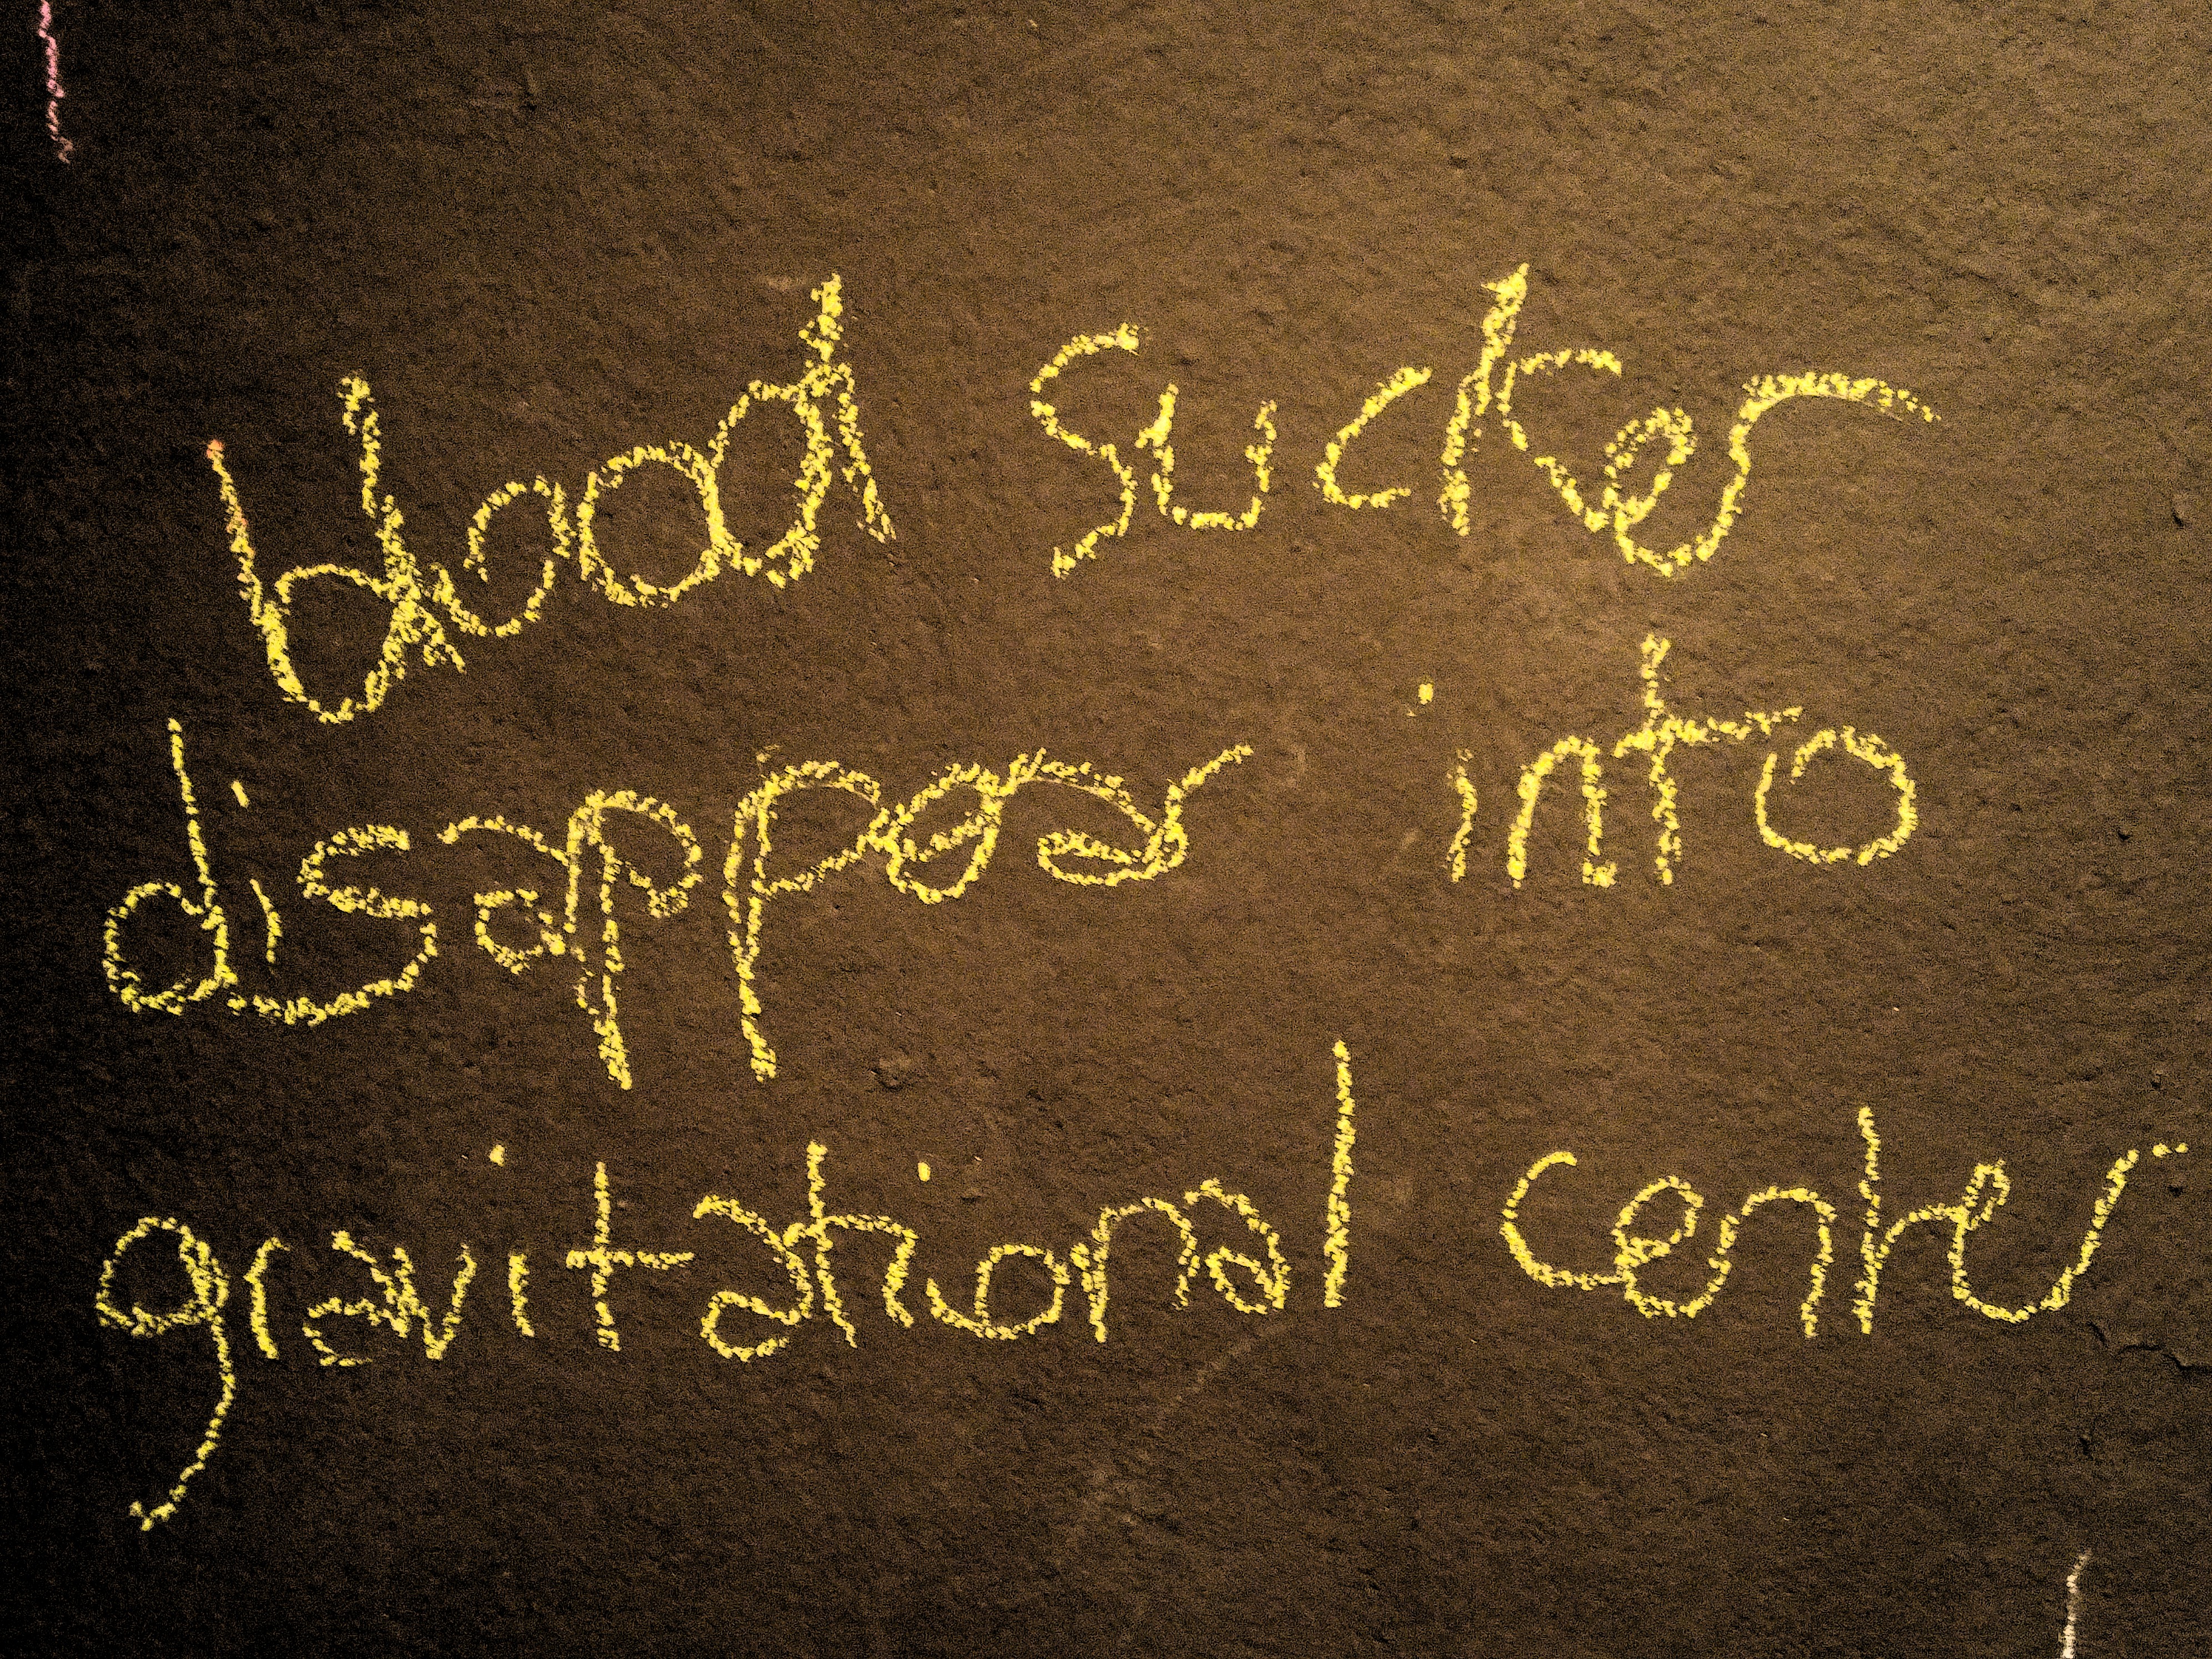 blood sucker
disappear into
gravitational center